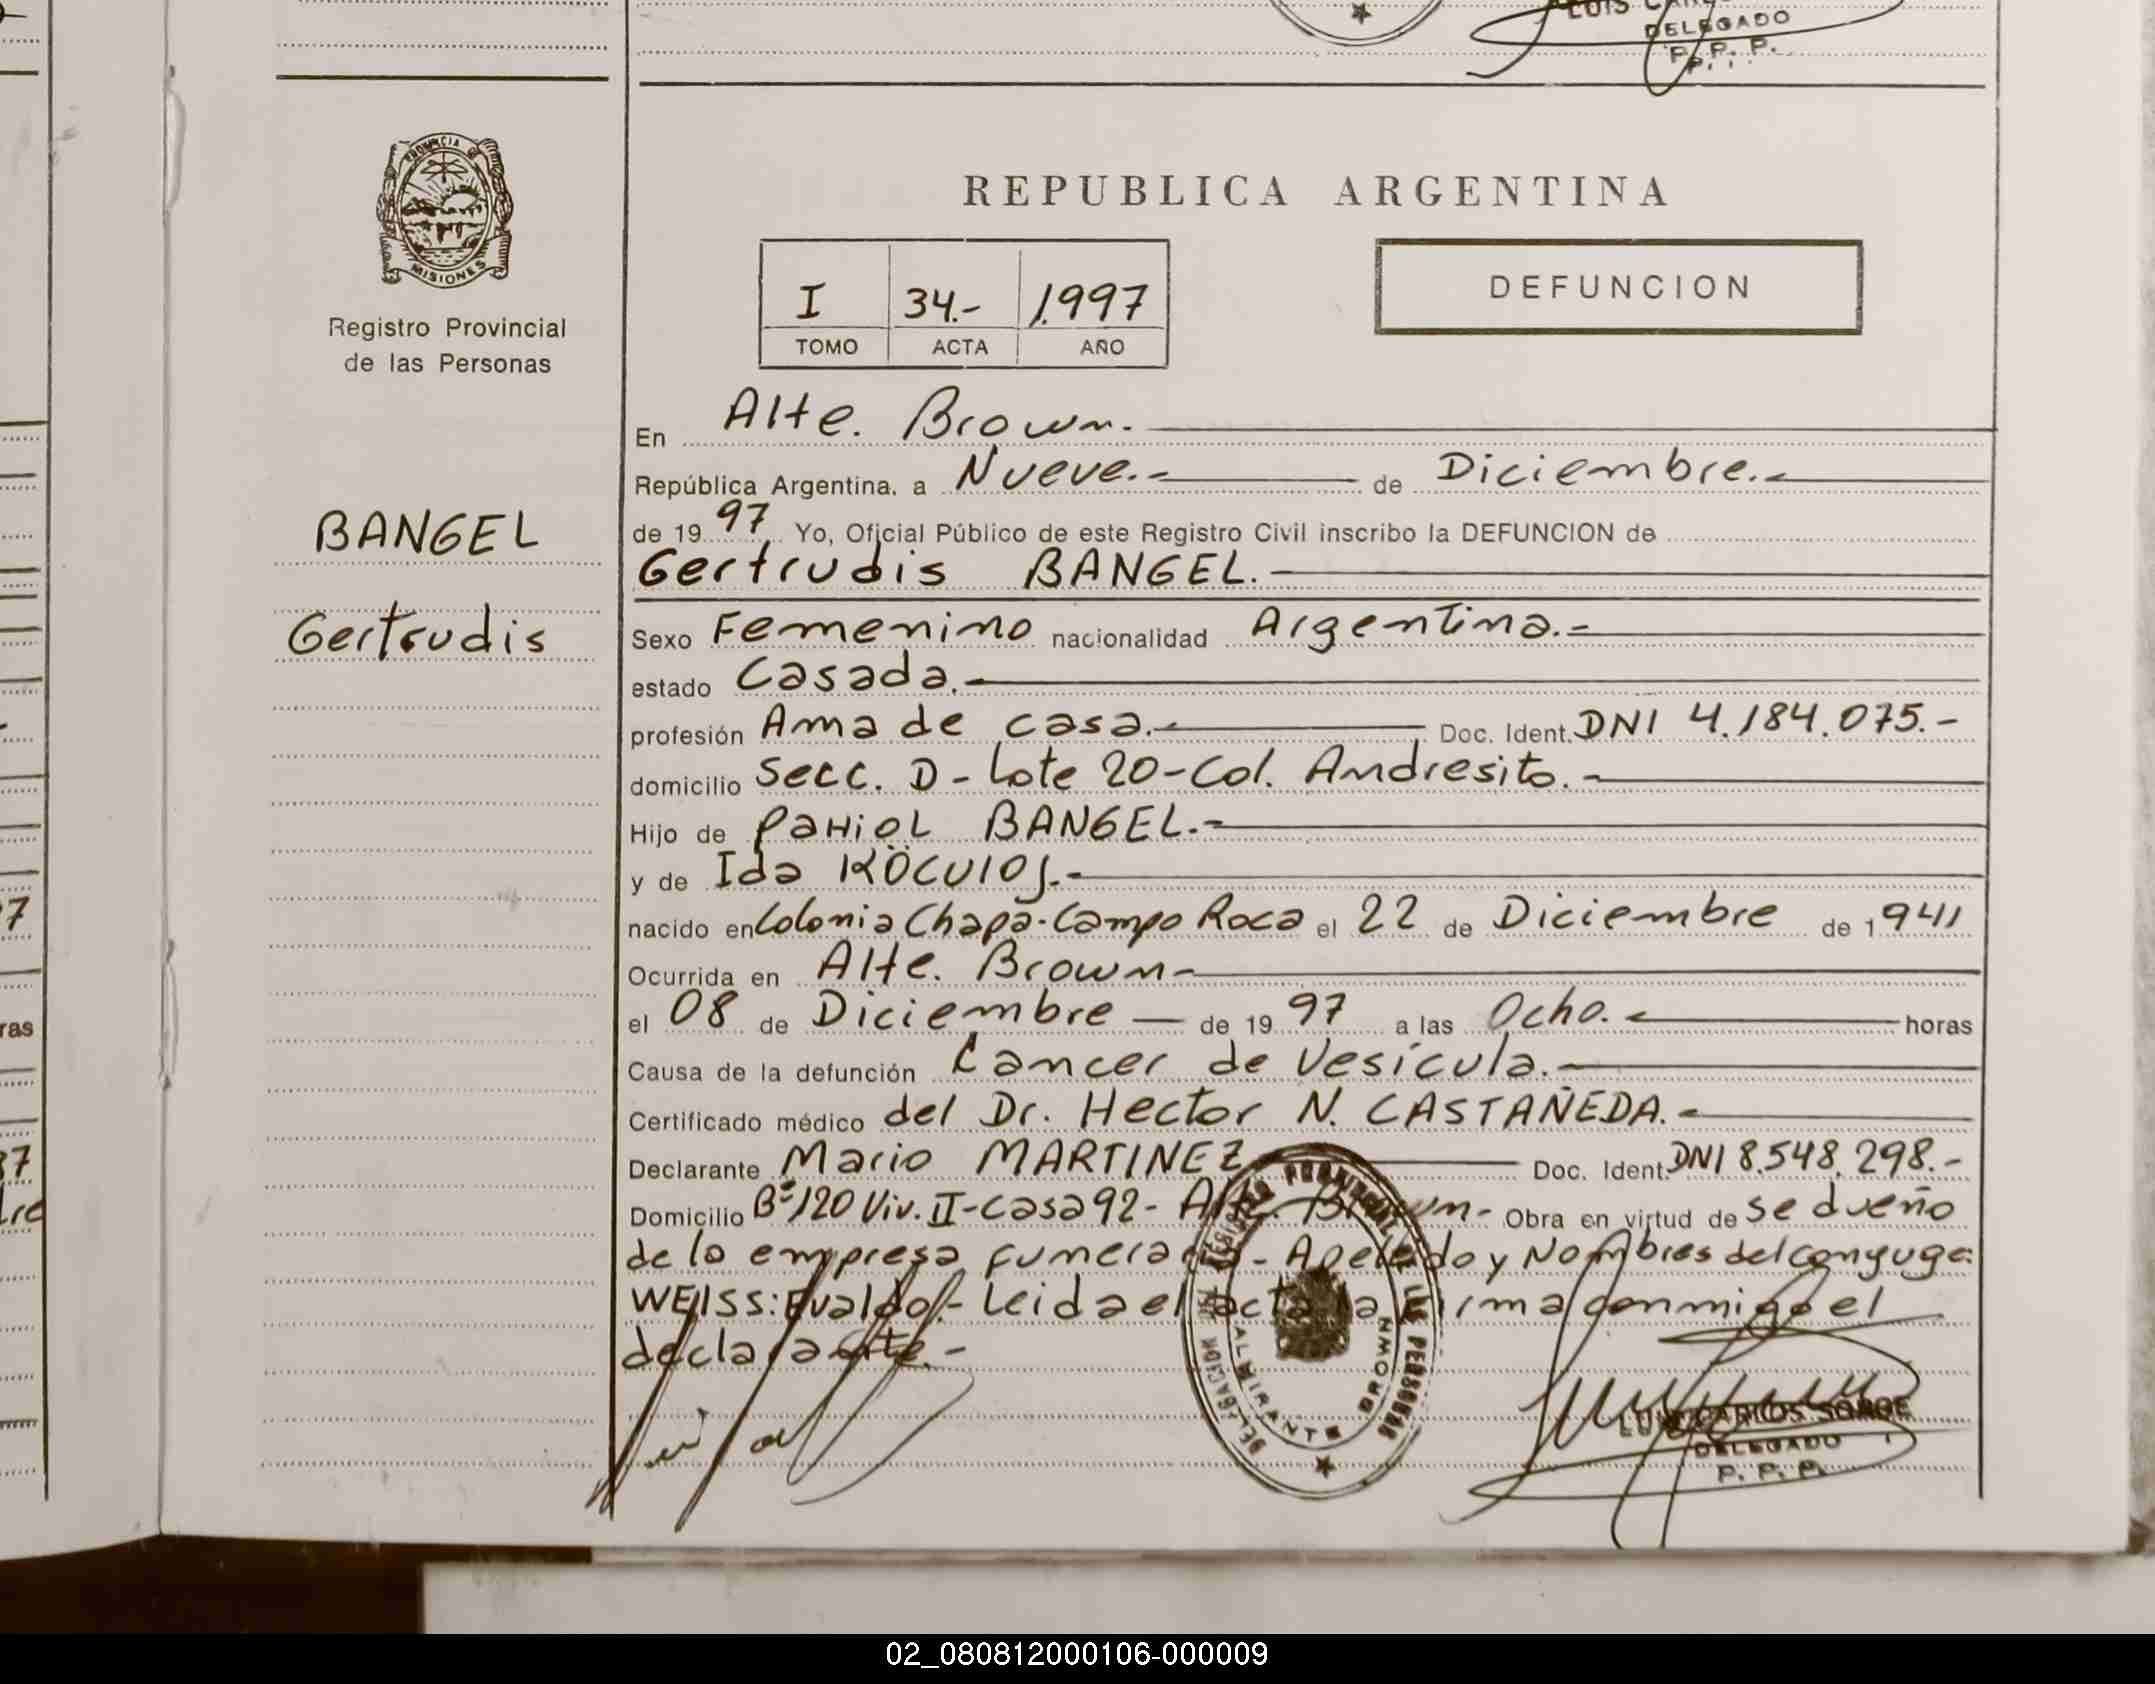 LUIS
DELEGADO
P. P. P.
PROVINCIA
MISIONES
Registro Provincial
de las Personas
BANGEL
Gertrudis
REPUBLICA ARGENTINA
I 34.- 1.997
TOMO ACTA AÑO
DEFUNCION
En Alte. Brown.
República Argentina, a Nueve.- de Diciembre.-
de 19 97 Yo, Oficial Público de este Registro Civil inscribo la DEFUNCION de
Gertrudis BANGEL.
Sexo Femenino nacionalidad Argentina.-
estado Casada.-
profesión Ama de casa.- Doc. Ident. DNI 4.184.075.-
domicilio Secc. D - Lote 20 - Col. Andresito.-
Hijo de PaHioL BANGEL.-
y de Ida
nacido en Colonia Chapa-Campo Roca el 22 de Diciembre de 1941
Ocurrida en Alte. Brown-
el 08 de Diciembre - de 19 97 a las Ocho.- horas
Causa de la defunción Cancer de Vesícula.-
Certificado médico del Dr. Hector N. CASTAÑEDA.-
Declarante Mario MARTINEZ Doc. Ident. DNI 8.548.298.-
Domicilio Bº 120 Viv. II-casa 92- Alte. Brown.- Obra en virtud de se dueño
de la empresa funeraria- Apellido y Nombres del conyuge:
WEISS: Evaldo.- Leida el acta la firma conmigo el
declarante.-
DELEGACION ALMIRANTE BROWN
LUIS CARLOS
DELEGADO
P. P. P.
7
ras
02_080812000106-000009